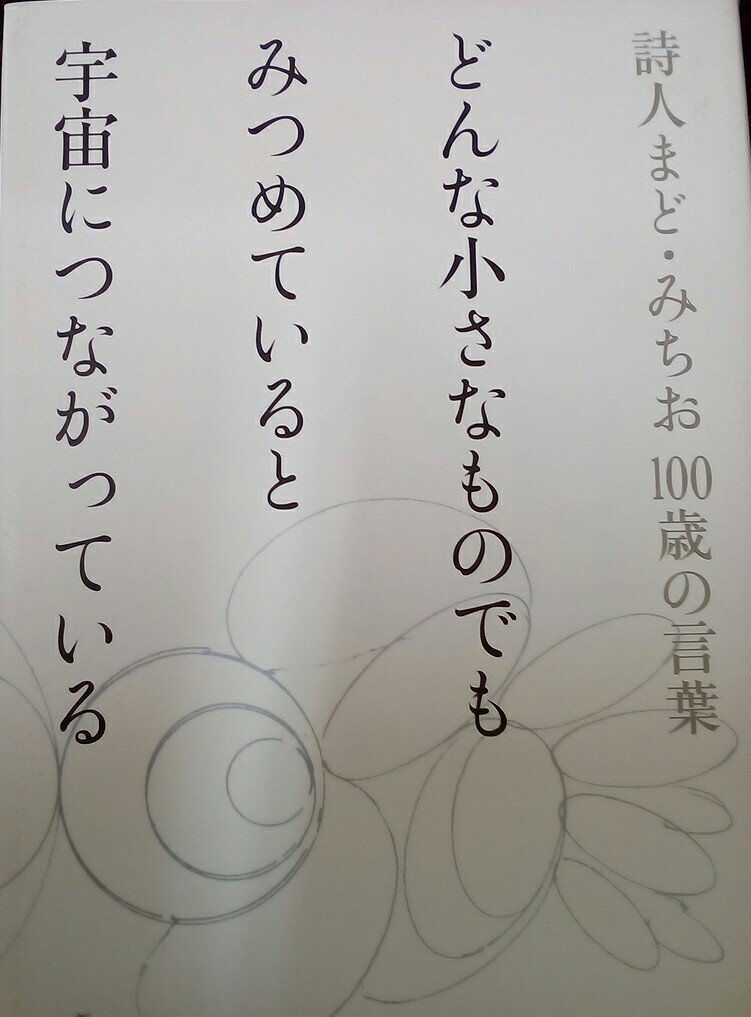 詩人まど・みちお 100歳の言葉
どんな小さなものでも
みつめていると
宇宙につながっている